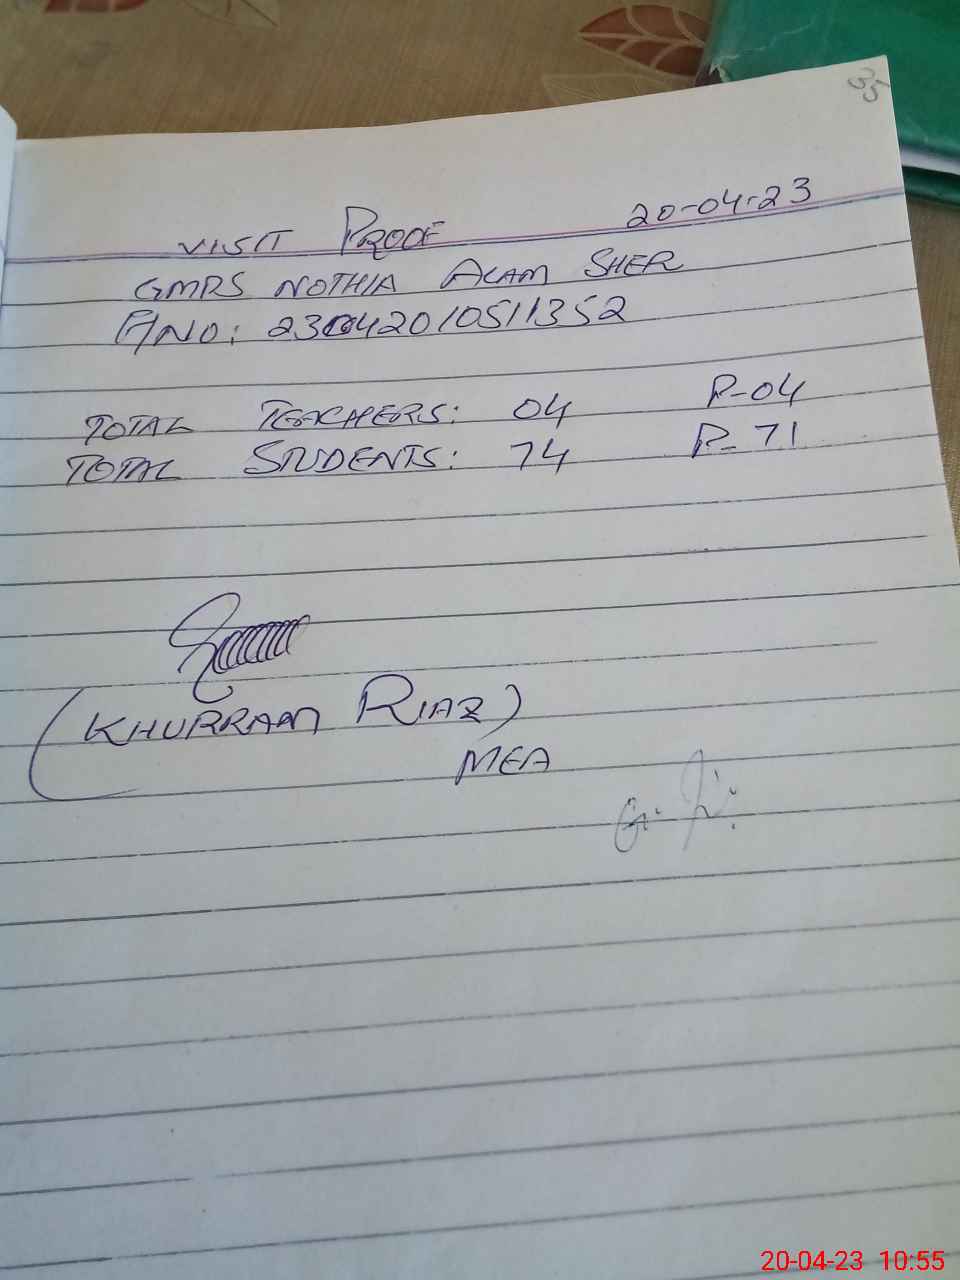 35
VISIT PROOF 20-04-23
GMPS NOTHIA ALAM SHER
A/NO: 23042010511352
TOTAL TEACHERS: 04 P-04
TOTAL STUDENTS: 74 P-71
(KHURRAM RIAZ)
MEA
20-04-23 10:55